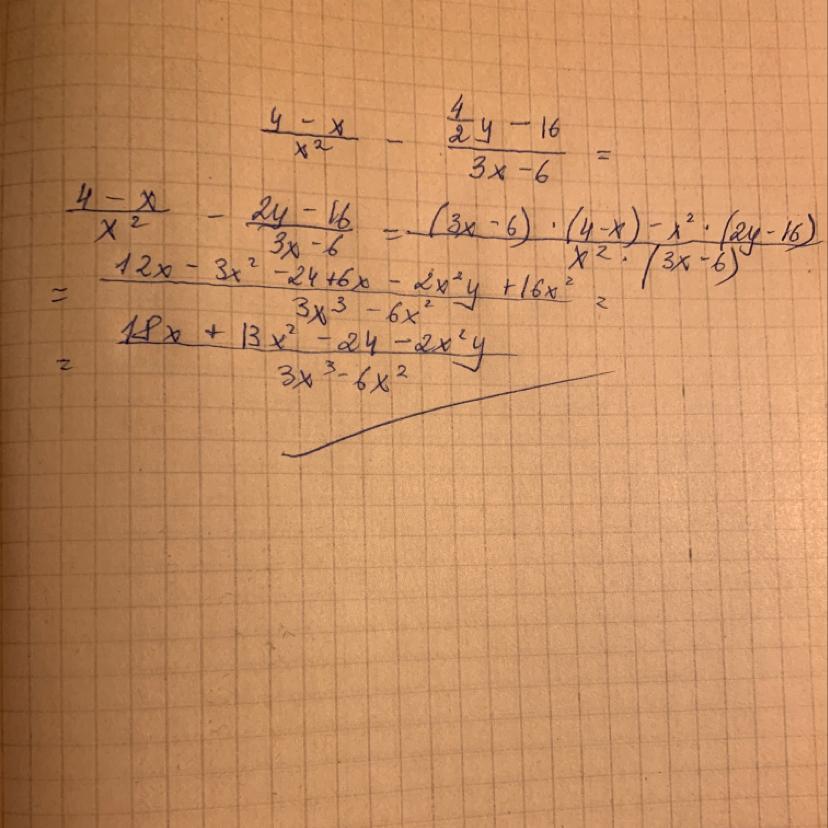 (4 - x)/x² - ((4/2)y - 16)/(3x - 6) =
(4 - x)/x² - (2y - 16)/(3x - 6) = ((3x - 6) · (4 - x) - x² · (2y - 16))/(x² · (3x - 6))
= (12x - 3x² - 24 + 6x - 2x²y + 16x²)/(3x³ - 6x²) =
= (18x + 13x² - 24 - 2x²y)/(3x³ - 6x²)